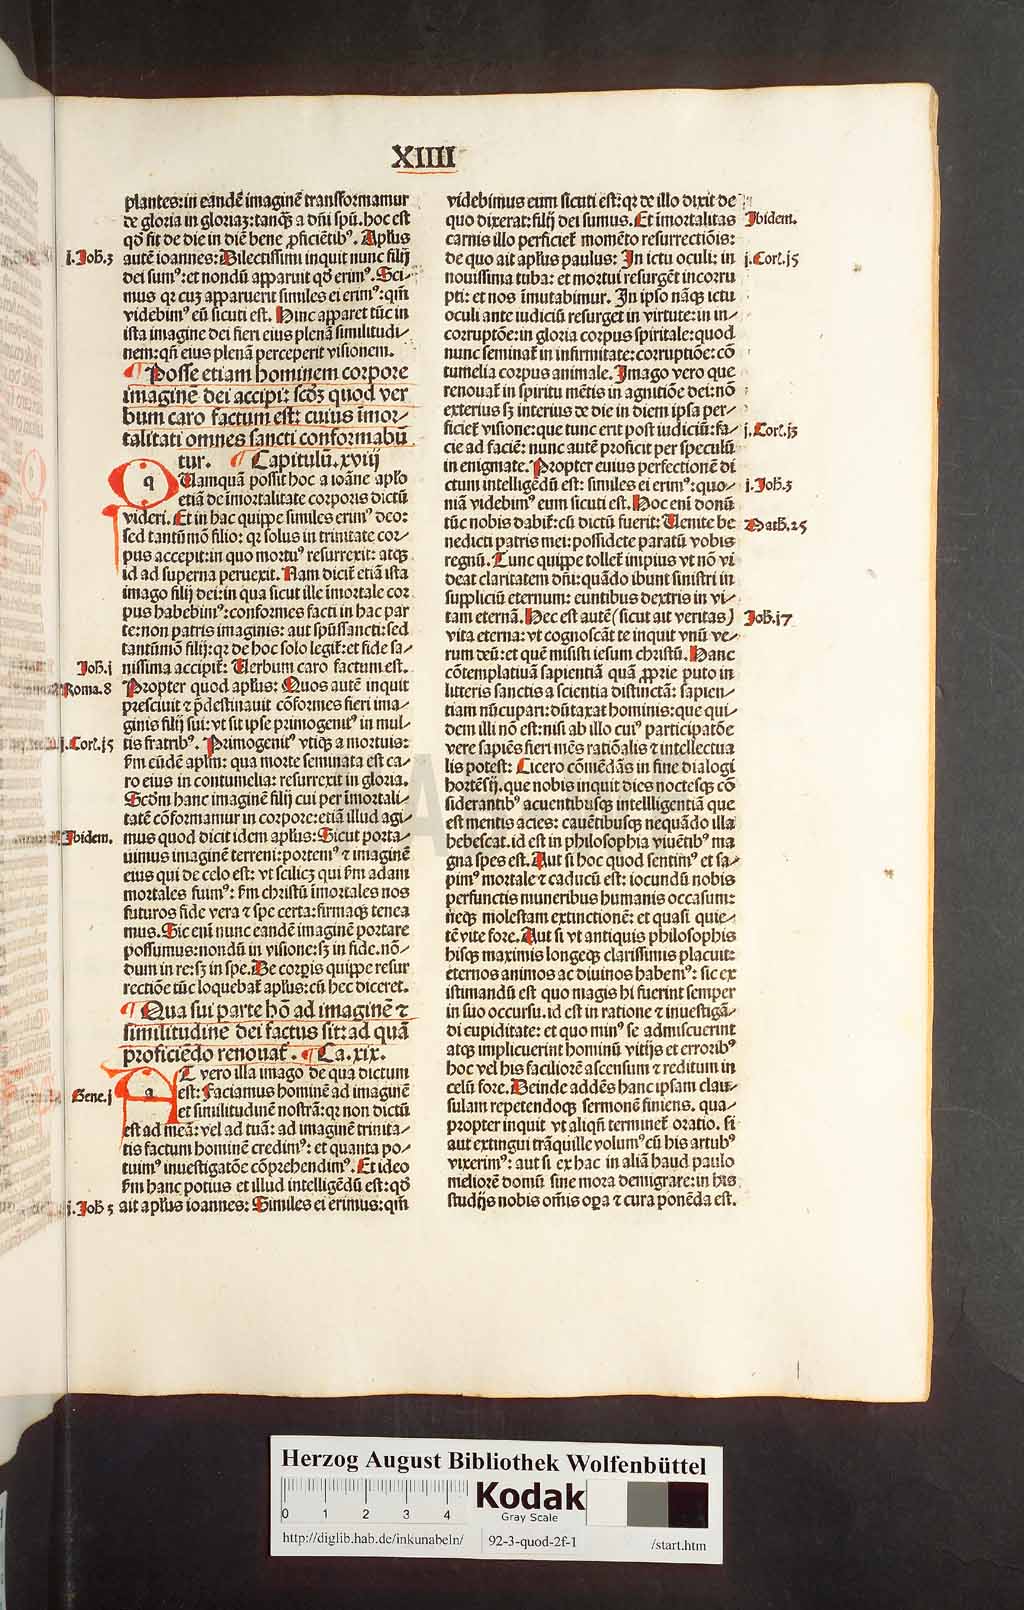 XIIII
plantes: in eandē imaginē transformamur
de gloria in gloriaz: tanq̄ȝ a dn̄i spū. hoc est
qd̄ fit de die in diē bene ꝓficiētibꝰ. Apl̓us
j. Joh̄. 3
autē ioannes: Dilectissimi inquit nunc filij
dei sumꝰ: et nondū apparuit qd̄ erimꝰ. Sci-
mus qꝛ cuȝ apparuerit similes ei erimꝰ: qm̄
videbimꝰ eū sicuti est. Hinc apparet tūc in
ista imagine dei fieri eius plenā similitudi-
nem: qn̄ eius plenā perceperit visionem.
¶ Posse etiam hominem corpore
imaginē dei accipi: scd̄ȝ quod ver
bum caro factum est: cuius īmor-
talitati omnes sancti conformabū
tur. ¶ Capitulū. xviij
qUamquā possit hoc a ioāne apl̓o
etiā de īmortalitate corporis dictū
videri. Et in hac quippe similes erimꝰ deo:
sed tantūmō filio: qꝛ solus in trinitate cor-
pus accepit: in quo mortuꝰ resurrexit: atqȝ
id ad superna peruexit. Nam dicit̄ etiā ista
imago filij dei: in qua sicut ille īmortale coꝛ
pus habebimꝰ: conformes facti in hac par
te: non patris imaginis: aut spūssancti: sed
tantūmō filij: qꝛ de hoc solo legit̄: et fide sa-
Joh̄. j
nissima accipit̄: Uerbum caro factum est.
Roma. 8
Propter quod apl̓us: Quos autē inquit
presciuit ⁊ p̄destinauit cōformes fieri ima-
ginis filij sui: vt sit ipse primogenitꝰ in mul-
j. Corī. j5
tis fratribꝰ. Primogenitꝰ vtiqȝ a mortuis:
ẜm eūdē apl̓m: qua morte seminata est ca-
ro eius in contumelia: resurrexit in gloria.
Scd̄m hanc imaginē filij cui per īmortali-
tatē cōformamur in corpore: etiā illud agi-
Ibidem.
mus quod dicit idem apl̓us: Sicut porta-
uimus imaginē terreni: portemꝰ ⁊ imaginē
eius qui de celo est: vt scilicȝ qui ẜm adam
mortales fuimꝰ: ẜm christū īmortales nos
futuros fide vera ⁊ spe certa: firmaqȝ tenea
mus. Sic enī nunc eandē imaginē portare
possumus: nondū in visione: sȝ in fide. nō-
dum in re: sȝ in spe. De corpis quippe resur
rectiōe tūc loquebat̄ apl̓us: cū hec diceret.
¶ Qua sui parte hō ad imaginē ⁊
similitudinē dei factus sit: ad quā
proficiēdo renouat̄. ¶ Ca. xix.
aT vero illa imago de qua dictum
Gene. j
est: Faciamus hominē ad imaginē
et similitudinē nostrā: qꝛ non dictū
est ad meā: vel ad tuā: ad imaginē trinita-
tis factum hominē credimꝰ: et quanta po-
tuimꝰ inuestigatōe cōprehendimꝰ. Et ideo
ẜm hanc potius et illud intelligēdū est: qd̄
j. Joh̄ 5
ait apl̓us ioannes: Similes ei erimus: qm̄
videbimus eum sicuti est: qꝛ de illo dixit de
quo dixerat: filij dei sumus. Et īmortalitas
Ibidem.
carnis illo perficiet̄ momēto resurrectiōis:
de quo ait apl̓us paulus: In ictu oculi: in
j. Corī. j5
nouissima tuba: et mortui resurgēt incorru
pti: et nos īmutabimur. In ipso nāqȝ ictu
oculi ante iudiciū resurget in virtute: in in-
corruptōe: in gloria corpus spiritale: quod
nunc seminat̄ in infirmitate: corruptiōe: cō
tumelia corpus animale. Imago vero que
renouat̄ in spiritu mētis in agnitiōe dei: nō
exterius sȝ interius de die in diem ipsa per-
ficiet̄ visione: que tunc erit post iudiciū: fa-
j. Corī. j3
cie ad faciē: nunc autē proficit per speculū
in enigmate. Propter cuius perfectionē di
ctum intelligēdū est: similes ei erimꝰ: quo-
j. Joh̄. 3
niā videbimꝰ eum sicuti est. Hoc enī donū
tūc nobis dabit̄: cū dictū fuerit: Uenite be
Math̄. 25
nedicti patris mei: possidete paratū vobis
regnū. Tunc quippe tollet̄ impius vt nō vi
deat claritatem dn̄i: quādo ibunt sinistri in
suppliciū eternum: euntibus dextris in vi-
tam eternā. Hec est autē (sicut ait veritas)
Joh̄. j7
vita eterna: vt cognoscāt te inquit vnū ve-
rum deū: et quē misisti iesum christū. Hanc
cōtemplatiuā sapientiā quā ꝓprie puto in
litteris sanctis a scientia distinctā: sapien-
tiam nūcupari: dūtaxat hominis: que qui-
dem illi nō est: nisi ab illo cuiꝰ participatōe
vere sapiēs fieri mēs ratiōalis ⁊ intellectua
lis potest: Cicero cōmēdās in fine dialogi
hortēsij. que nobis inquit dies noctesqȝ cō
siderantibꝰ acuentibusqȝ intellligentiā que
est mentis acies: cauētibusqȝ nequādo illa
hebescat. id est in philosophia viuētibꝰ ma
gna spes est. Aut si hoc quod sentimꝰ et sa-
pimꝰ mortale ⁊ caducū est: iocundū nobis
perfunctis muneribus humanis occasum:
neqȝ molestam extinctionē: et quasi quie-
tē vite fore. Aut si vt antiquis philosophis
hisqȝ maximis longeqȝ clarissimis placuit:
eternos animos ac diuinos habemꝰ: sic ex
istimandū est quo magis hi fuerint semper
in suo occursu. id est in ratione ⁊ inuestigā-
di cupiditate: et quo minꝰ se admiscuerint
atqȝ implicuerint hominū vitijs et erroribꝰ
hoc vel his faciliorē ascensum ⁊ reditum in
celū fore. Deinde addēs hanc ipsam clau-
sulam repetendoqȝ sermonē finiens. qua-
propter inquit vt aliqn̄ terminet̄ oratio. si
aut extingui trāquille volumꝰ cū his artubꝰ
vixerimꝰ: aut si ex hac in aliā haud paulo
meliorē domū sine mora demigrare: in his
studijs nobis om̄is oꝑa ⁊ cura ponēda est.
Herzog August Bibliothek Wolfenbüttel
0 1 2 3 4
Kodak
Gray Scale
http://diglib.hab.de/inkunabeln/
92-3-quod-2f-1
/start.htm